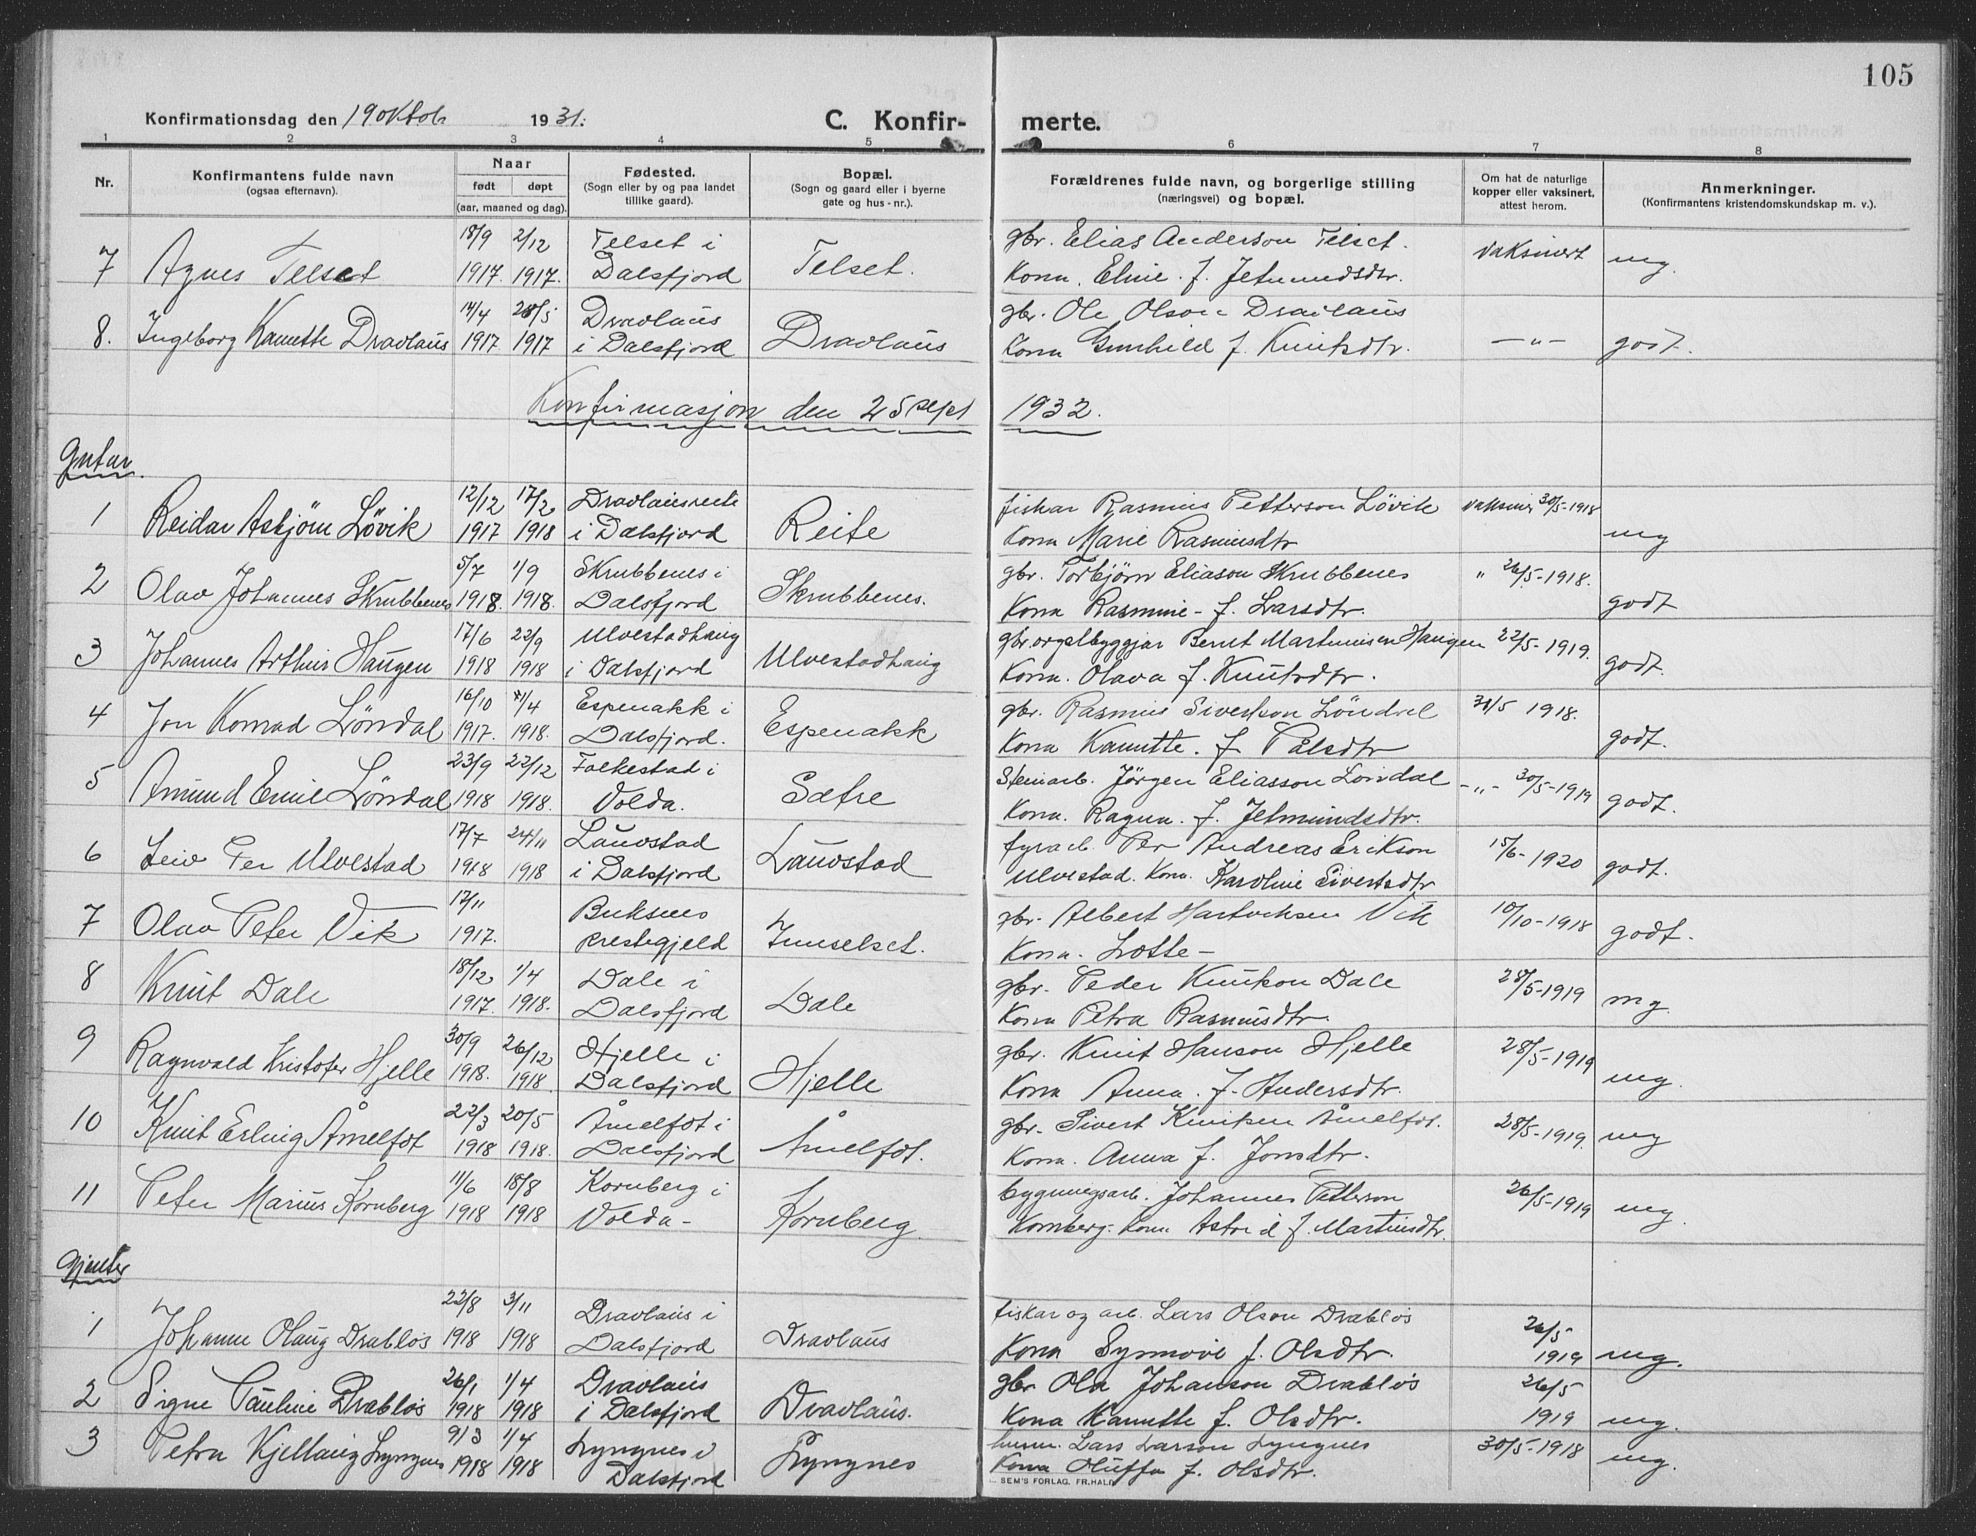 105
Konfirmationsdag den 19 oktob 1931.
C. Konfirmerte.
1 2 3 4 5 6 7 8
Nr.
Konfirmantens fulde navn
(ogsaa efternavn).
Naar
født døpt
(aar, maaned og dag).
Fødested.
(Sogn eller by og paa landet
tillike gaard).
Bopæl.
(Sogn og gaard eller i byerne
gate og hus-nr.).
Forældrenes fulde navn, og borgerlige stilling
(næringsvei) og bopæl.
Om hat de naturlige
kopper eller vaksinert,
attest herom.
Anmerkninger.
(Konfirmantens kristendomskundskap m. v.).
18/9 2/12 Telset i gbr. Elias Anderson Telset.
7 Agnes Telset 1917. 1917. Dalsfjord Telset. Kona. Eline. f. Jetmundsdtr. vaksinert mg.
14/4 28/5 Dravlaus gbr. Ole Olson Dravlaus
8. Ingeborg Kanutte Dravlaus 1917 1917 i Dalsfjord Dravlaus Kona Gunhild f. Knutsdtr. —"— godt.
Konfirmasjon den 25 sept 1932.
Gutar.
12/12 17/2 Dravlausreite fiskar Rasmus Petterson Løvik vaksiner 30/5-1918
1 Reidar Asbjørn Løvik 1917 1918 i Dalsfjord Reite Kona Marie Rasmusdtr mg
5/7 1/9 Skrubbenes i gbr. Torbjørn Eliason Skrubbenes " 26/5-1918.
2 Olav Johannes Skrubbenes 1918. 1918. Dalsfjord Skrubbenes. Kona Rasmine - f. Larsdtr. godt
17/6 22/9 Ulvestadhaug gbr. orgelbyggjar Bernt Martinusen Haugen 22/5-1919.
3 Johannes Arthur Haugen 1918 1918 i Dalsfjord Ulvestadhaug Kona. Olava f. Knutsdtr. godt.
16/10 /4 Espenakk i gbr. Rasmus Sivertson Løndal 31/5 1918.
4 Jon Konrad Løndal 1917. 1918. Dalsfjord. Espenakk Kona Kanutte. f. Pålsdtr godt.
23/9 22/12 Folkestad i Steinarb. Jørgen Eliasson Løndal —"— 30/5-1919
5 Amund Emil Løndal 1918 1918. Volda. Sætre Kona. Ragna. f. Jetmundsdtr. godt.
17/7 24/11 Lauvstad fyrarb. Per Andreas Erikson 15/6-1920
6 Leiv Per Ulvestad 1918 1918 i Dalsfjord Lauvstad Ulvestad. Kona. Karoline Sivertsdtr godt.
17/11 Buksnes gbr. Albert Hartvigsen Vik 10/10-1918
7 Olav Peter Vik 1917. prestegjeld Kona. Lotte - godt.
18/12 1/4 Dale i gbr. Peder Knutson Dale 28/5-1919
8 Knut Dale 1917. 1918. Dalsfjord Dale Kona Petra Rasmusdtr. mg
30/9 26/12 Hjelle i gbr. Knut Hanson Hjelle 28/5-1919
9 Ragnvald Kristofer Hjelle 1918. 1918 Dalsfjord Hjelle Kona Anna. f. Andersdtr. mg.
22/3 20/5 Åmelfot i gbr. Sivert Knutsen Åmelfot. 28/5-1919.
10 Knut Erling Åmelfot 1918 1918. Dalsfjord Åmelfot. Kona. Anna f. Jonsdtr. mg
11/6 18/8 Kornberg i bygningsarb. Johannes Petterson 26/5-1919
11 Peter Marius Kornberg 1918 1918 Volda - Kornberg. Kornberg. Kona Astrid f. Martinsdtr. mg.
Gjenter
22/8 3/11 Dravlaus i fiskar og arb. Lars Olson Drabløs 26/5
1 Johanne Olaug Drabløs 1918 1918 Dalsfjord Dravlaus Kona Synnøve f. Olsdtr. 1919 mg.
26/1 1/4 Dravlaus gbr Ola Johanson Drabløs 26/5
2 Signe Pauline Drabløs 1918 1918 i Dalsfjord Dravlaus. Kona Kanutte f. Olsdtr. 1919 mg.
9/3 1/4 Lyngnes i husm. Lars Larson Lyngnes 30/5-1918
3 Petra Kjellaug Lyngnes 1918 1918 Dalsfjord Lyngnes Kona Oluffa f. Olsdtr. mg.
SEM'S FORLAG, FR.HALD